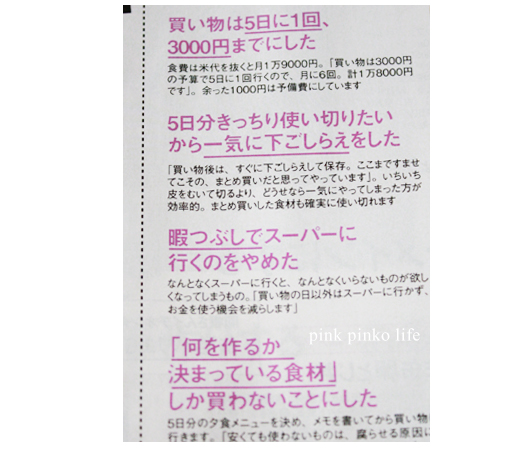 買い物は5日に1回、
3000円までにした
食費は米代を抜くと月1万9000円。「買い物は3000円
の予算で5日に1回行くので、月に6回。計1万8000円
です」。余った1000円は予備費にしています
5日分きっちり使い切りたい
から一気に下ごしらえをした
「買い物後は、すぐに下ごしらえして保存。ここまですませ
てこその、まとめ買いだと思ってやっています」。いちいち
皮をむいて切るより、どうせなら一気にやってしまった方が
効率的。まとめ買いした食材も確実に使い切れます
暇つぶしでスーパーに
行くのをやめた
なんとなくスーパーに行くと、なんとなくいらないものが欲し
くなってしまうもの。「買い物の日以外はスーパーに行かず、
お金を使う機会を減らします」
pink pinko life
「何を作るか
決まっている食材」
しか買わないことにした
5日分の夕食メニューを決め、メモを書いてから買い物
行きます。「安くても使わないものは、腐らせる原因に